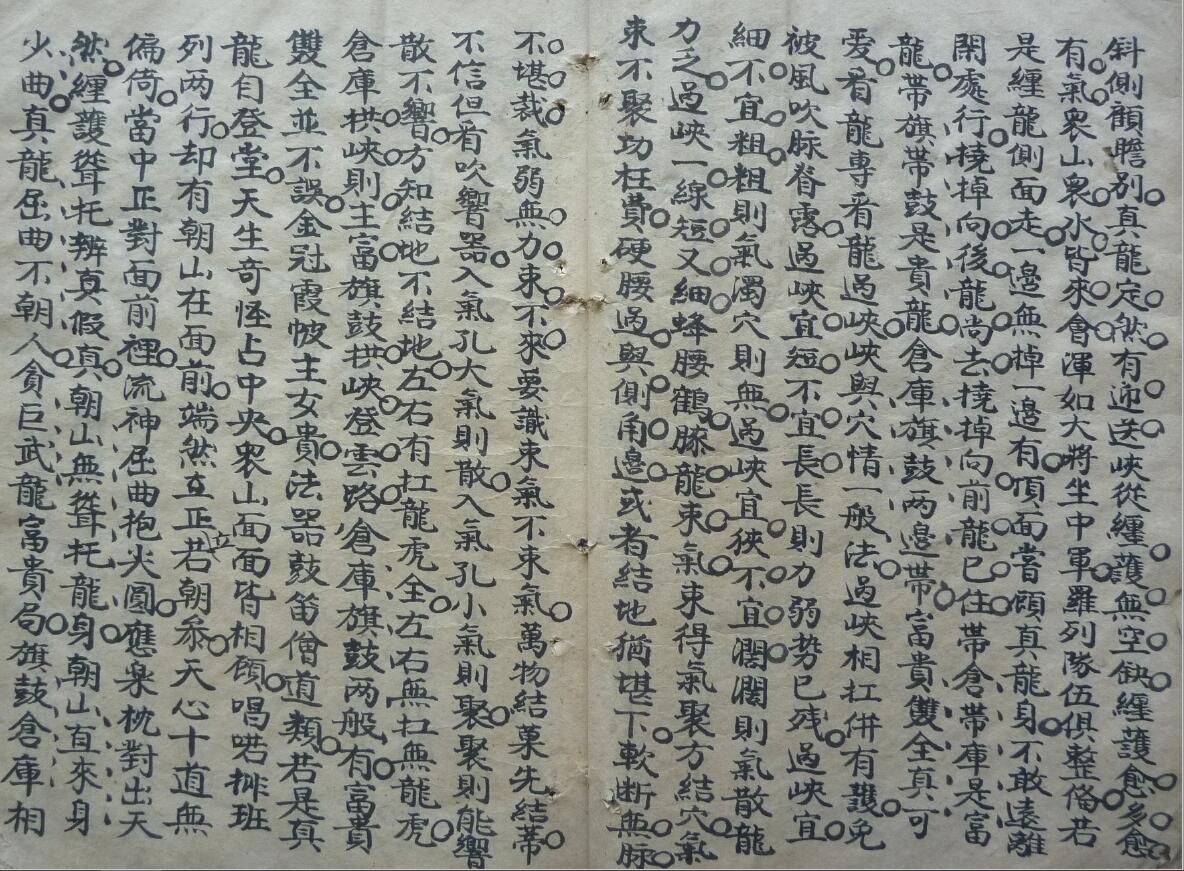 斜側顧瞻別真龍定然有迎送峽從纏護無空缺纏護愈多愈
有氣衆山衆水皆來會渾如大將坐中軍羅列隊伍俱整俻若
是纏龍側面走一邊無掉一邊有頂面當頋真龍身不敢遠離
閑處行撓掉向後龍尚去撓掉向前龍已住帶倉帶庫是富
龍帶旗帶鼓是貴龍倉庫旗鼓兩邊帶富貴雙全真可
愛看龍專看龍過峽峽與穴情一般法過峽相扛併有護免
被風吹脉脊露過峽宜短不宜長長則力弱势已残過峽宜
細不宜粗粗則氣濁穴則無過峽宜狹不宜濶濶則氣散龍
力乏過峽一線短又細蜂腰鶴膝龍束氣束得氣聚方結穴氣
束不聚功枉費硬腰過與側角邊或者結地猶堪下軟断無脉
不堪裁氣弱無力束不來要識束氣不束氣萬物結菓先結蒂
不信但看吹響器入氣孔大氣則散入氣孔小氣則聚聚則能響
散不響方知結地不結地左右有扛龍虎全左右無扛無龍虎
倉庫拱峽則主富旗鼓拱峽登雲路倉庫旗鼓两般有富貴
雙全並不誤金冠霞帔主女貴法器鼓笛僧道類若是真
龍自登堂天生奇怪占中央衆山面面皆相頋唱喏排班
列两行却有朝山在面前端然立正若立朝叅天心十道無
偏倚當中正對面前裡流神屈曲抱尖圓應樂枕對出天
然纏護聳托辨真假真朝山無聳托龍身朝山直來身
少曲真龍屈曲不朝人貪巨武龍富貴局旗鼓倉庫相